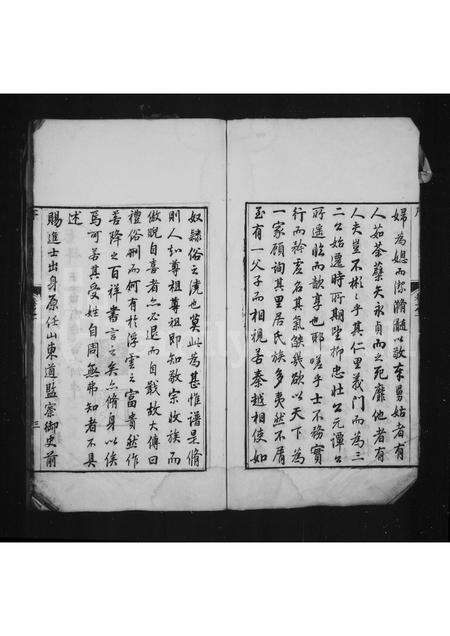 婦為媳而滌滫髓以敬奉舅姑者有
人茹荼蘗矢永貞而之死靡他者有
人夫豈不彬彬乎其仁里義門而為三
二公始遷時所期望抑忠壯公元譚公
所遥臨而歆享也耶嗟乎士不務實
行而矜虛名其氣熊熊欲以天下為
一家顧詢其里居氏族多夷然不屑
至有一父子而相視若秦越相使如
奴隸俗之澆也莫此為甚惟譜是脩
則人知尊祖尊祖即知敬宗收族而
傲睨自喜者亦必退而自戢故大傳曰
禮俗刑而何有於浮雲之富貴然作
善降之百祥書言之矣亦脩身以俟
焉可若其受姓自周無弗知者不具
述
賜進士出身原任山東道監察御史前
三